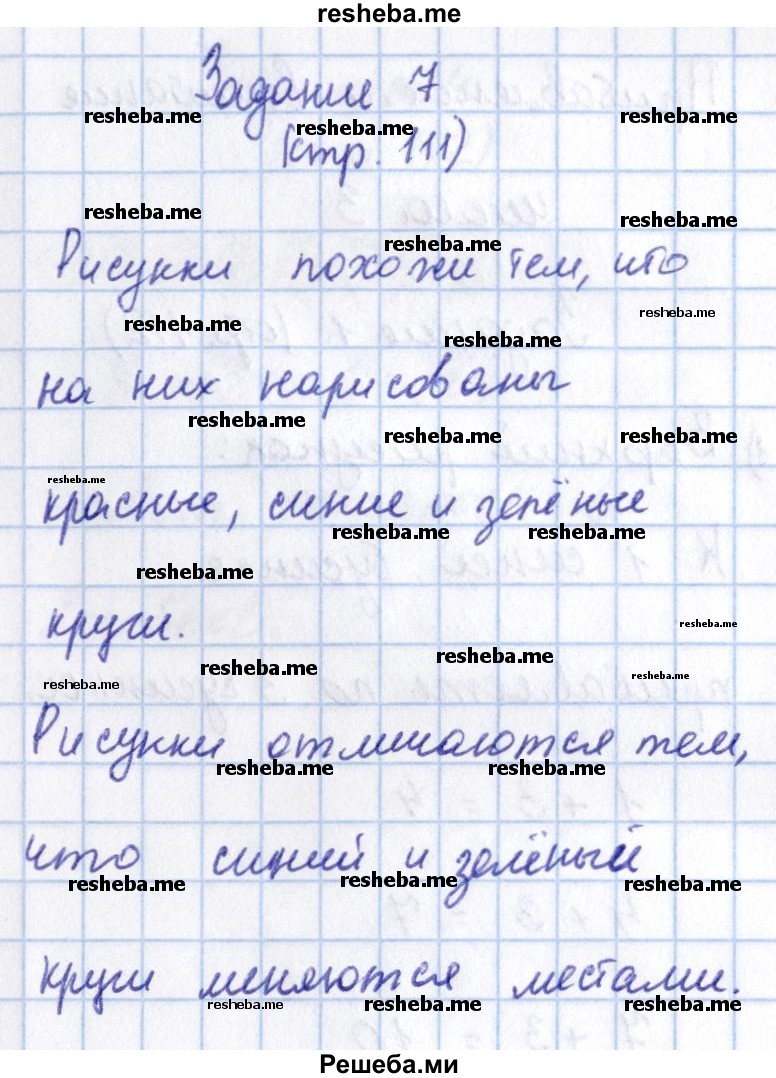 resheba.me
Задание 7
resheba.me resheba.me resheba.me
(стр. 111)
resheba.me resheba.me
resheba.me
Рисунки похожи тем, что
resheba.me resheba.me
resheba.me
на них нарисованы
resheba.me resheba.me resheba.me
resheba.me
красные, синие и зелёные
resheba.me resheba.me
resheba.me
круги.
resheba.me
resheba.me resheba.me
resheba.me resheba.me
Рисунки отличаются тем,
resheba.me resheba.me
что синий и зелёный
resheba.me resheba.me resheba.me
круги меняются местами.
resheba.me resheba.me resheba.me
Решеба.ми